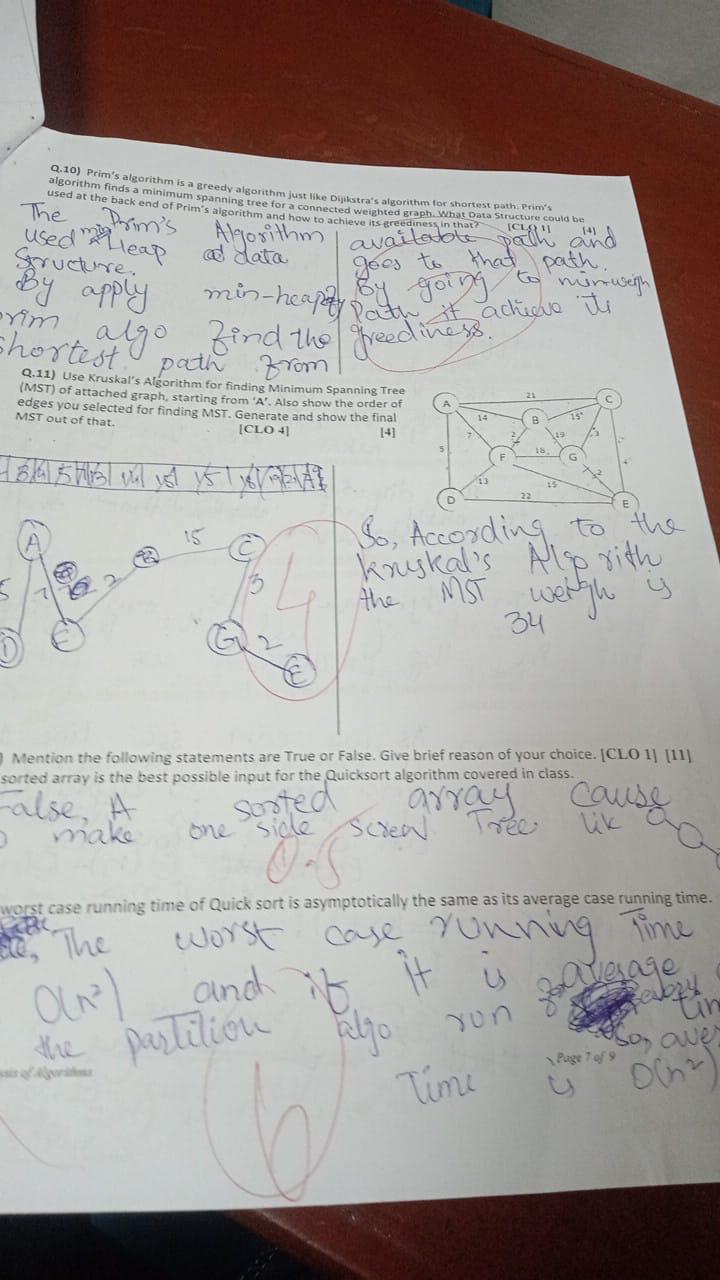 Q.10) Prim's algorithm is a greedy algorithm just like Dijikstra's algorithm for shortest path. Prim's
algorithm finds a minimum spanning tree for a connected weighted graph. What Data Structure could be
used at the back end of Prim's algorithm and how to achieve its greediness in that?
[CLO 1] [4]
The Prim's Algorithm
used min Heap data
Structure.
By apply min-heap
prim algo find the
shortest path from
available path and
goes to that path.
By going to min-weigh
path it achieve its
greediness.
2
Q.11) Use Kruskal's Algorithm for finding Minimum Spanning Tree
(MST) of attached graph, starting from 'A'. Also show the order of
edges you selected for finding MST. Generate and show the final
MST out of that. [CLO 4] [4]
A 21 C
14 B 15
5 7 2 19 3
F 18 G
13 15 2
D 22 E
A 15 C
5 7 2 B 3
D F G 2 E
4
So, According to the
kruskal's Algorith
the MST weigh is
34
) Mention the following statements are True or False. Give brief reason of your choice. [CLO 1] [11]
sorted array is the best possible input for the Quicksort algorithm covered in class.
False, A sorted array cause
make one side screw Tree lik
0.5
worst case running time of Quick sort is asymptotically the same as its average case running time.
The worst case running Time
O(n²) and it is average
the partition algo run
So, aver
Time is O(n²)
6
sis of Algorithms
Page 7 of 9